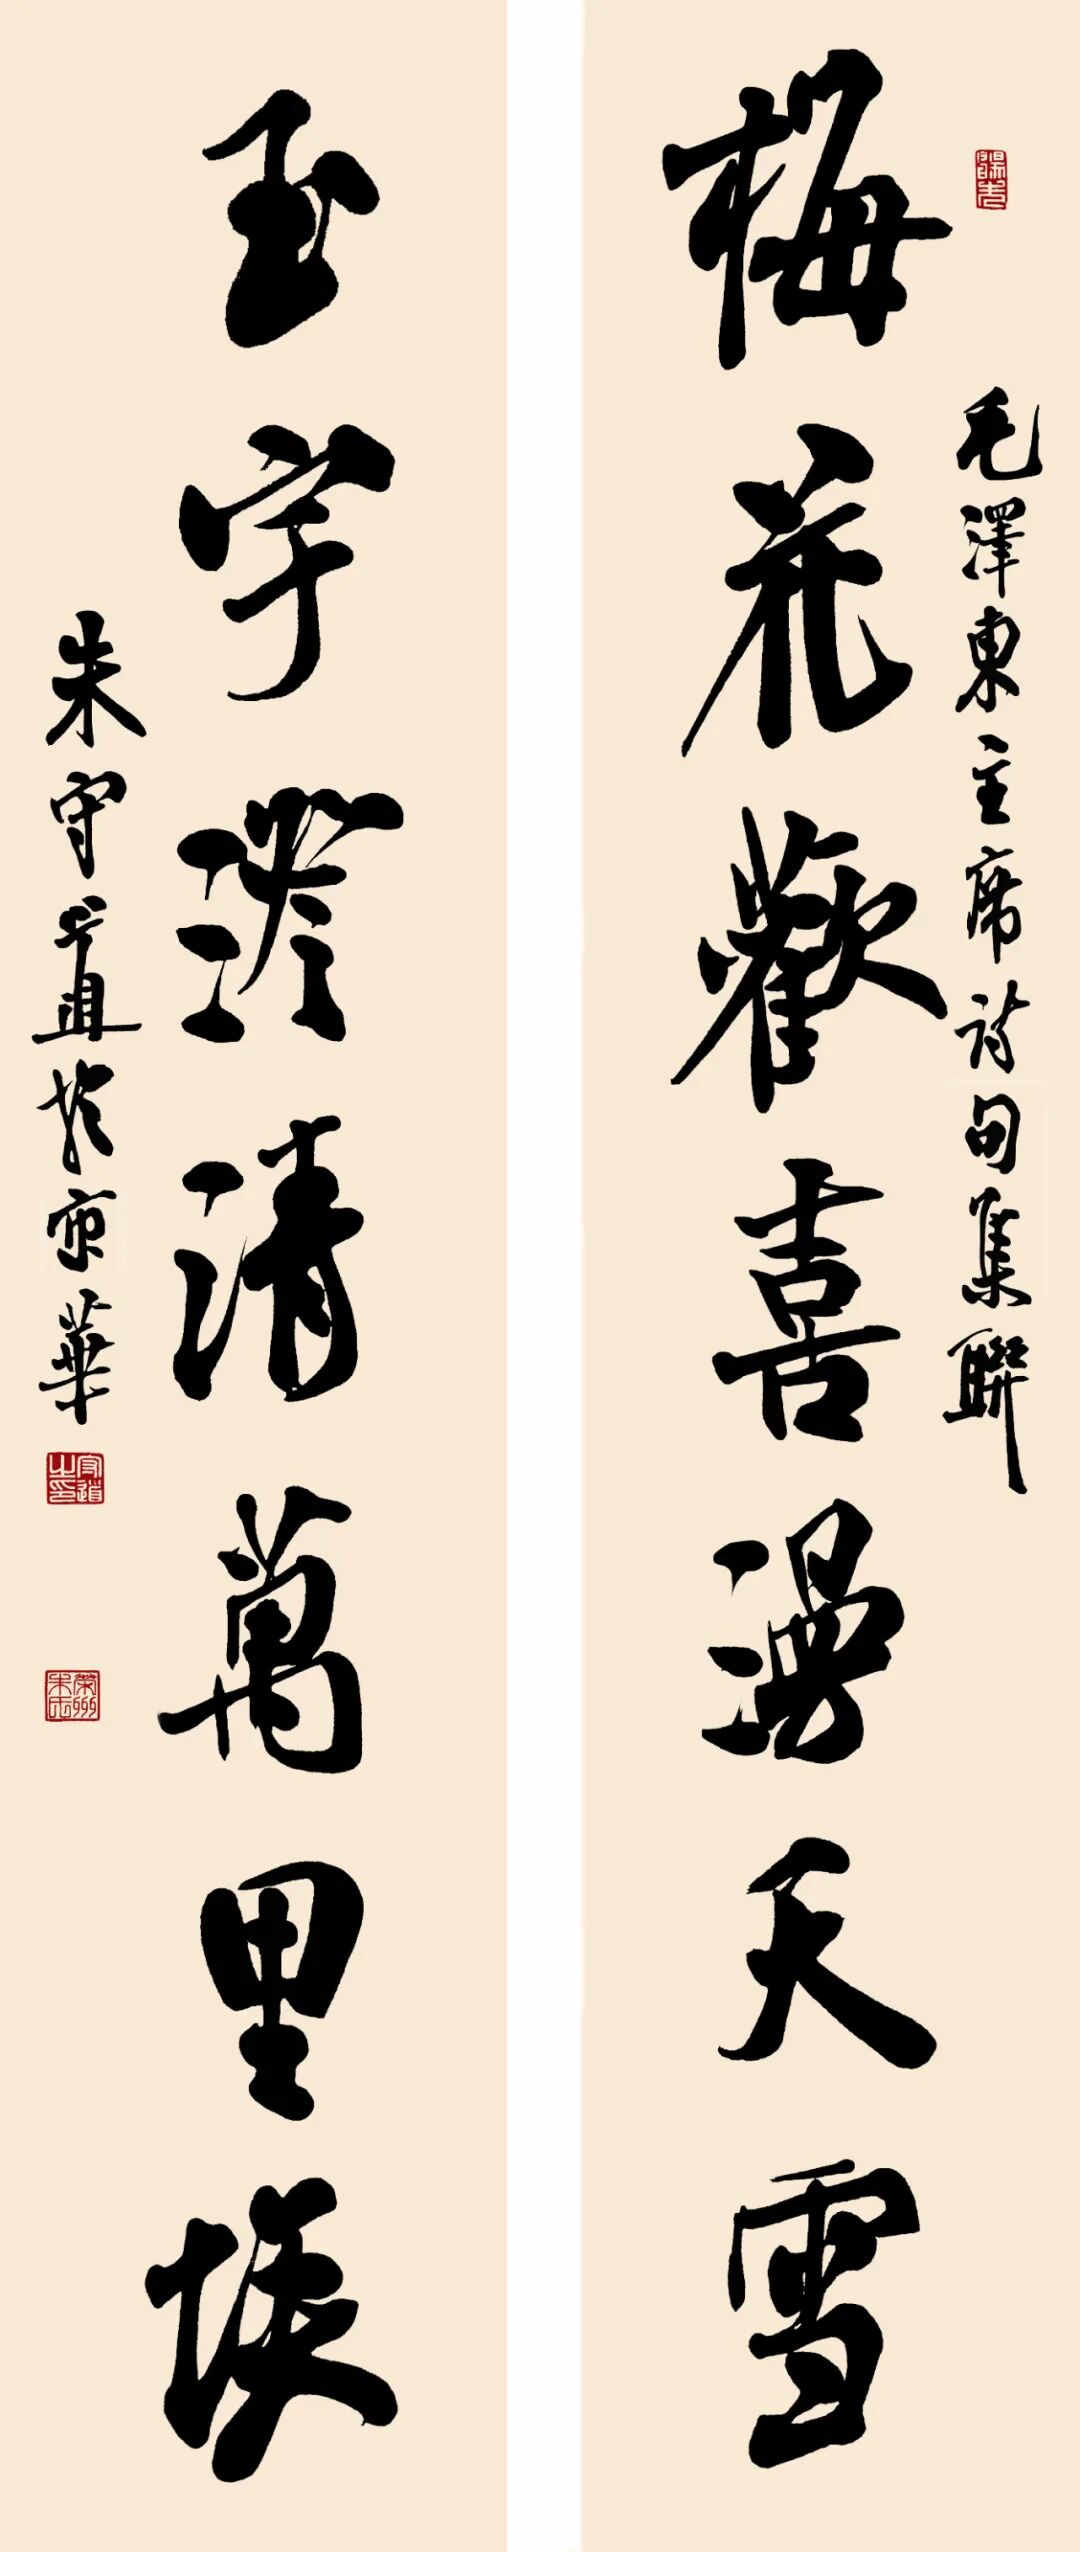 毛澤東主席詩句集聯
梅花歡喜漫天雪
玉宇澄清萬里埃
朱守道於京華
守道之印